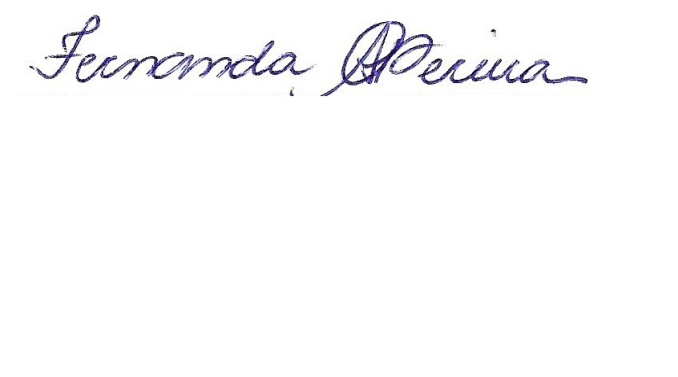 Fernanda A Perina